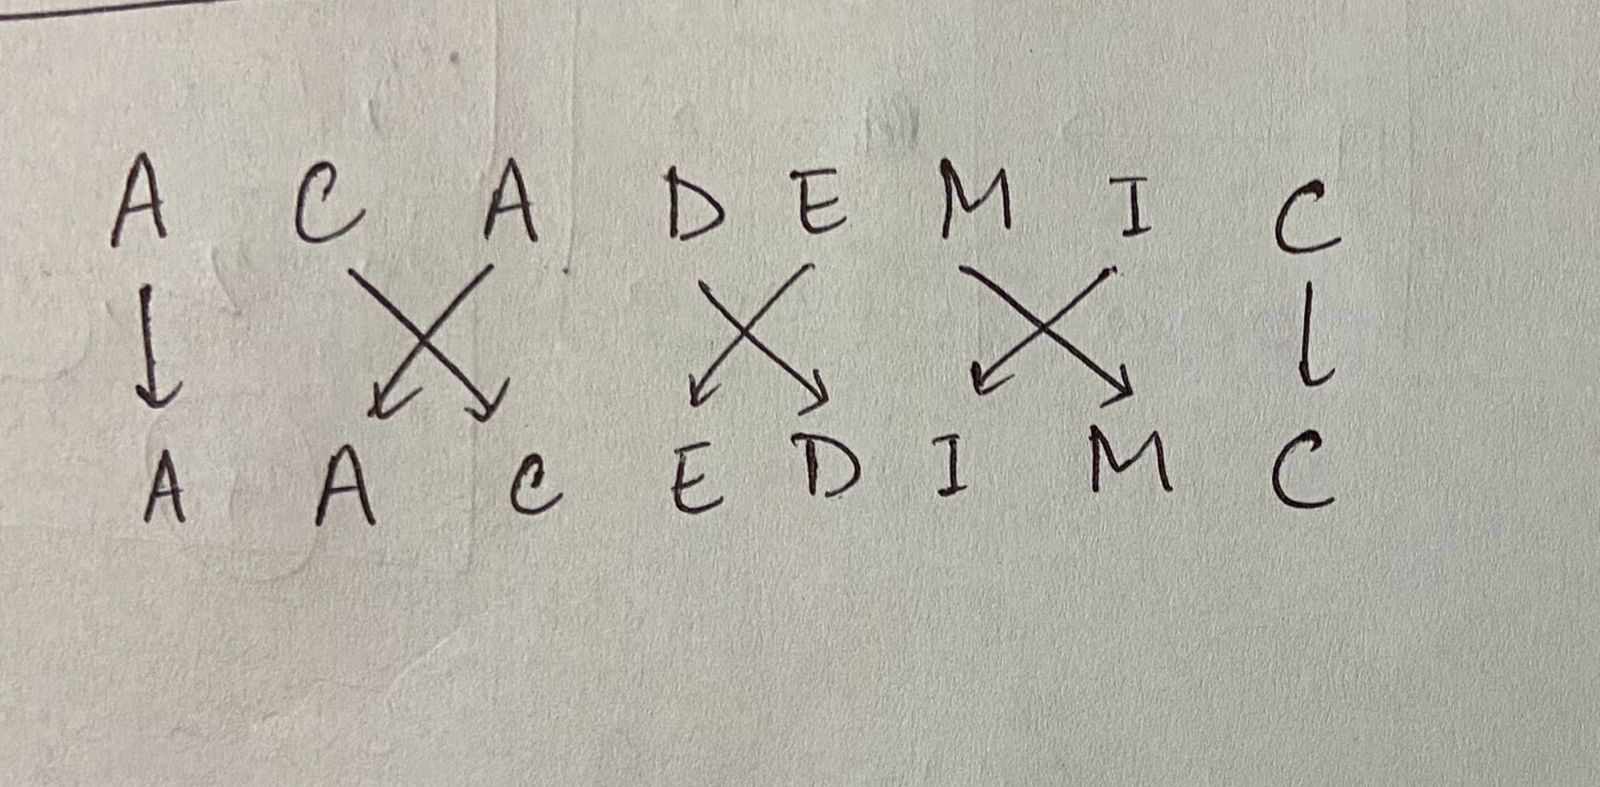 A C A D E M I C
A A C E D I M C